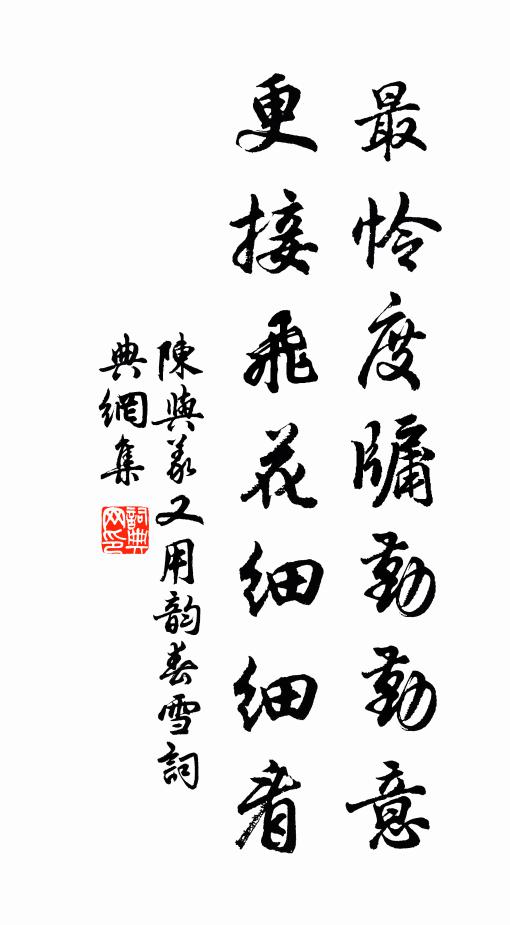 最怜度牖勤勤意
更接飛花细细看
陳與義又用韵春雪詞
典網集
詞典网印